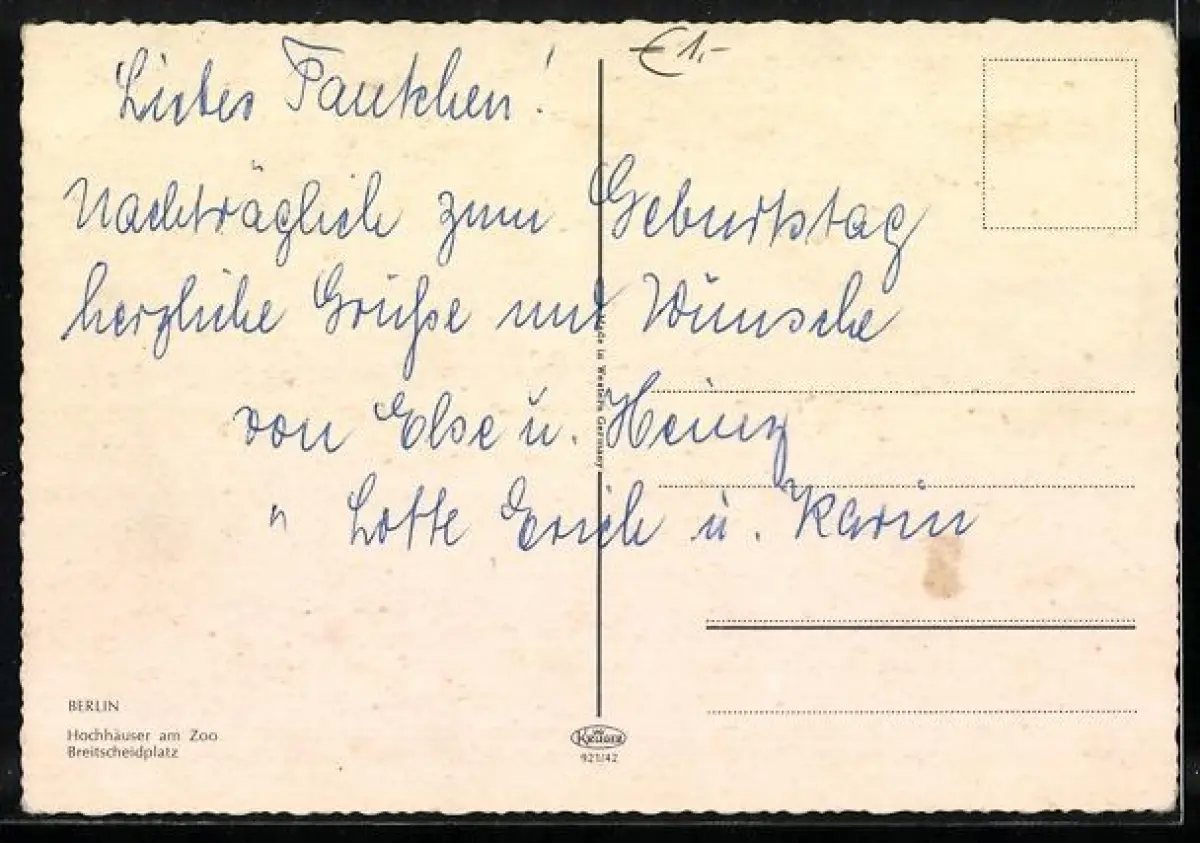 € 1.-
Liebes Tantchen!
Nachträglich zum Geburtstag
herzliche Grüße und Wünsche
von Else u. Heinz
" Lotte Erich u. Karin
Made in Western Germany
BERLIN
Hochhäuser am Zoo
Breitscheidplatz
Krüger
921/42